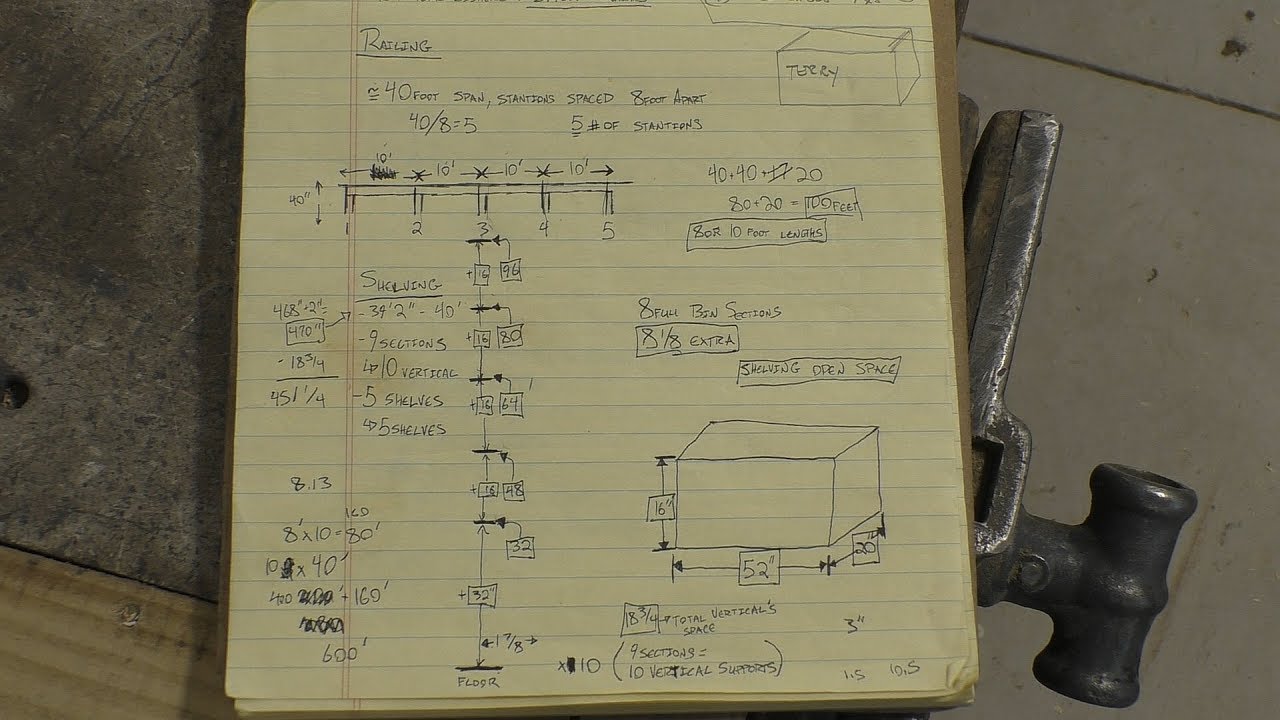 RAILING
TERRY
≅ 40 FOOT SPAN, STANTIONS SPACED 8 FOOT APART
40/8=5 5 # OF STANTIONS
10' 10' 10' 10'
40"
1 2 3 4 5
40+40+17 20
80+20 = 100 FEET
8 OR 10 FOOT LENGTHS
SHELVING
468"+2"=
470"
- 18 3/4
451 1/4
- 39'2" - 40'
- 9 SECTIONS
↳ 10 VERTICAL
- 5 SHELVES
↳ 5 SHELVES
+16 96
+16 80
+16 64
+16 48
32
+32"
1 7/8
FLOOR
x10
8 FULL BIN SECTIONS
8 1/8 EXTRA
SHELVING OPEN SPACE
16"
52"
20"
8.13
160
8'x10=80'
10 x 40'
400 + 160'
600'
18 3/4 → TOTAL VERTICAL'S
SPACE
(9 SECTIONS =
10 VERTICAL SUPPORTS)
3"
1.5 10.5